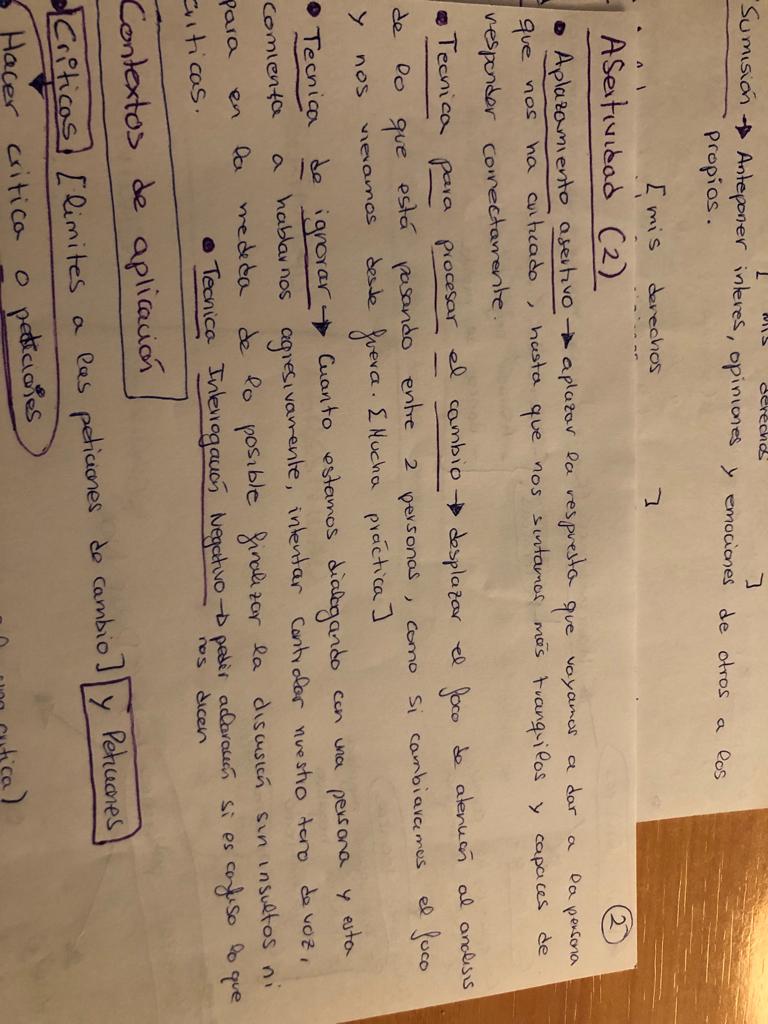 Sumisión → Anteponer interes, opiniones y emociones de otros a los
propios.
[ mis derechos ]
[ mis derechos ]
②
Asertividad (2)
• Aplazamiento asertivo → aplazar la respresta que vayamos a dar a la persona
que nos ha criticado, hasta que nos sintamos más tranquilos y capaces de
responder correctamente.
• Tecnica para procesar el cambio → desplazar el foco de atención al analisis
de lo que está pasando entre 2 personas, como si cambiaramos el foco
y nos vieramos desde fuera. [Mucha práctica]
• Tecnica de ignorar → Cuanto estamos dialogando con una persona y esta
comienta a hablarnos agresivamente, intentar controlar nuestro tono de voz,
para en la medida de lo posible finalizar la discusión sin insultos ni
criticas.
• Tecnica Interrogación Negativo → pedir aclaración si es confuso lo que
nos dicen
Contextos de aplicación
Críticas [limites a las peticiones de cambio] y Peticiones
• Hacer critica o peticiones
una critica)